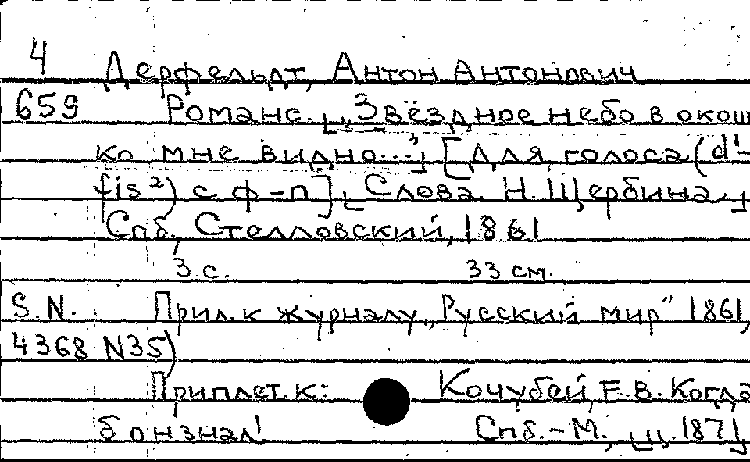 4 Дерфельдт, Антон Антонович
659 Романс. [„Звёздное небо в окош
ко мне видно..."] [Для голоса (d¹-
fis²) с ф-п]. [Слова Н. Щербина.]
Спб, Стелловский, 1861
3 с. 33 см.
S.N. Прил. к журналу „Русский мир" 1861,
4368 N35)
Приплет. к: Кочубей, Е.В. Когда
б он знал! Спб.-М., ц. 1871